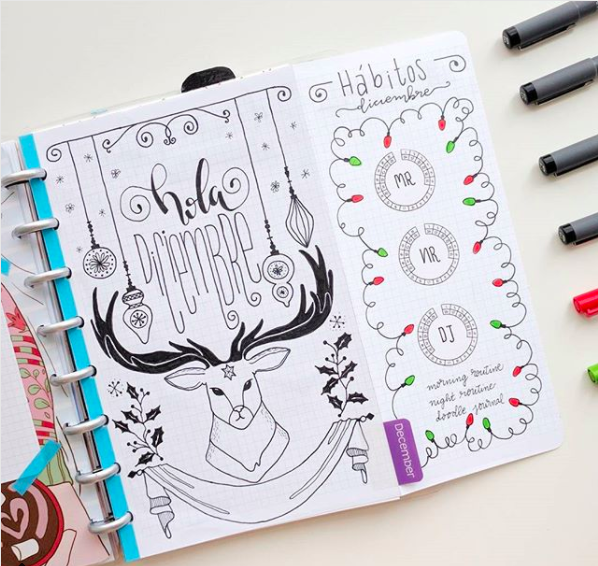 hola
Diciembre
Hábitos
diciembre
MR
NR
DJ
morning routine
night routine
doodle journal
December